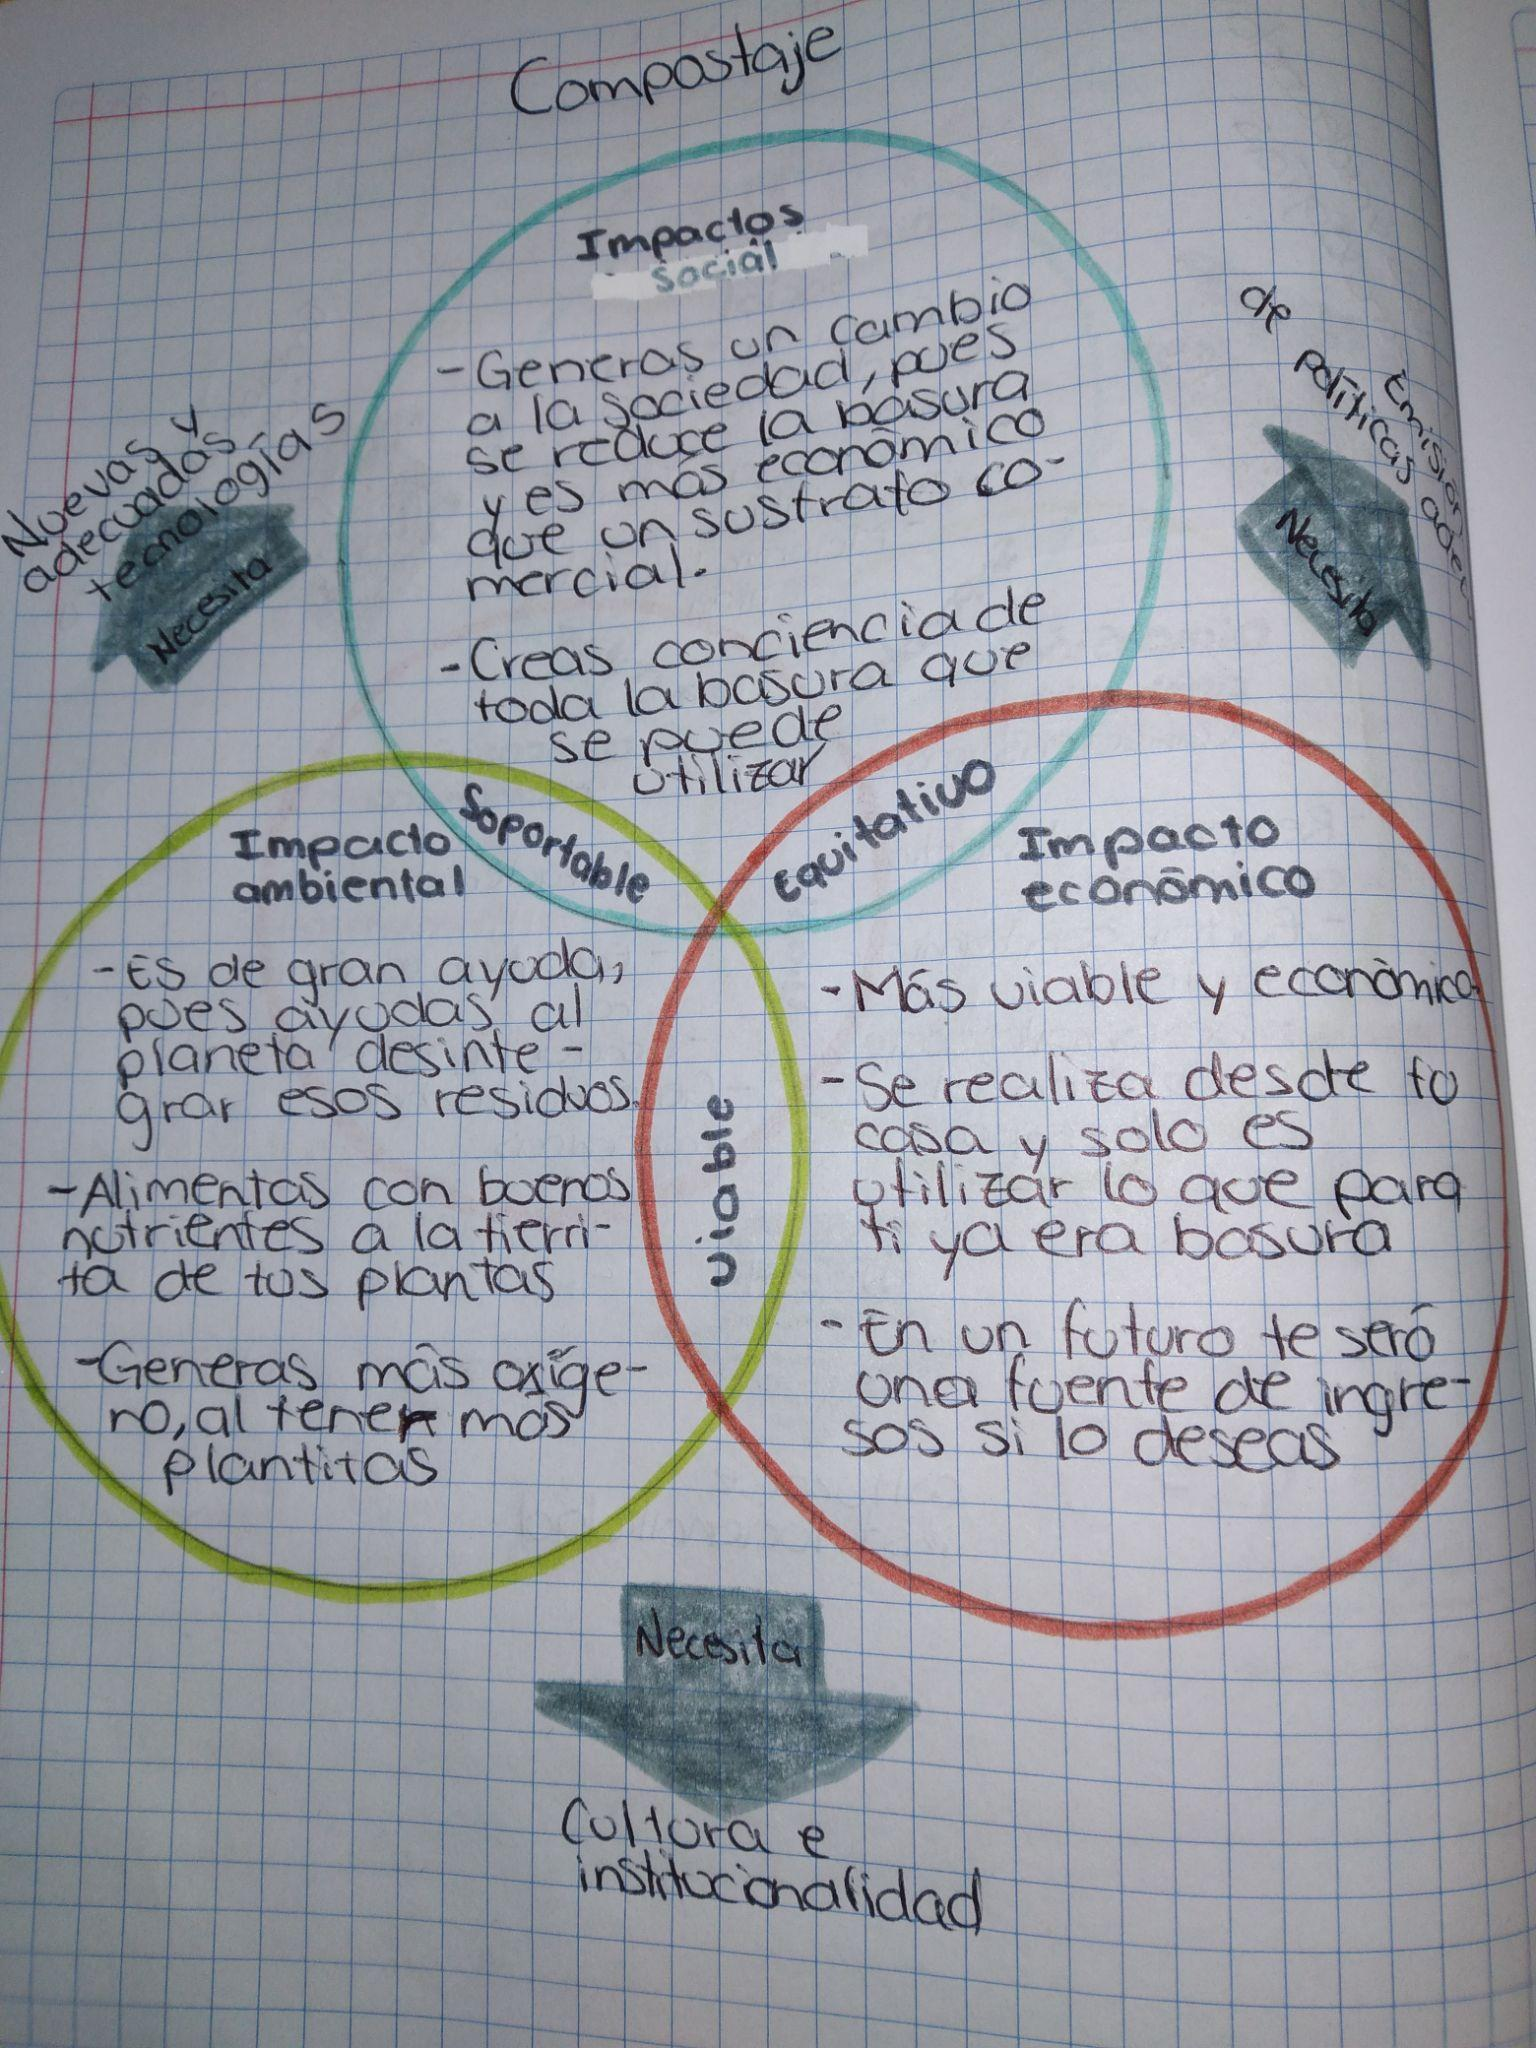 Compostaje
Impactos
Social
- Generas un cambio
a la sociedad, pues
se reduce la basura
y es más económico
que un sustrato co-
mercial.
- Creas conciencia de
toda la basura que
se puede
utilizar
Nuevas y
adecuadas
tecnologías
Necesita
Emisión
de políticas
Necesita
Soportable
Equitativo
Impacto
ambiental
- Es de gran ayuda,
pues ayudas al
planeta desinte-
grar esos residuos.
- Alimentas con buenos
nutrientes a la tierri-
ta de tus plantas
- Generas más oxíge-
no, al tener más
plantitas
viable
Impacto
económico
- Más viable y económico.
- Se realiza desde tu
casa y solo es
utilizar lo que para
ti ya era basura
- En un futuro te será
una fuente de ingre-
sos si lo deseas
Necesita
Cultura e
institucionalidad